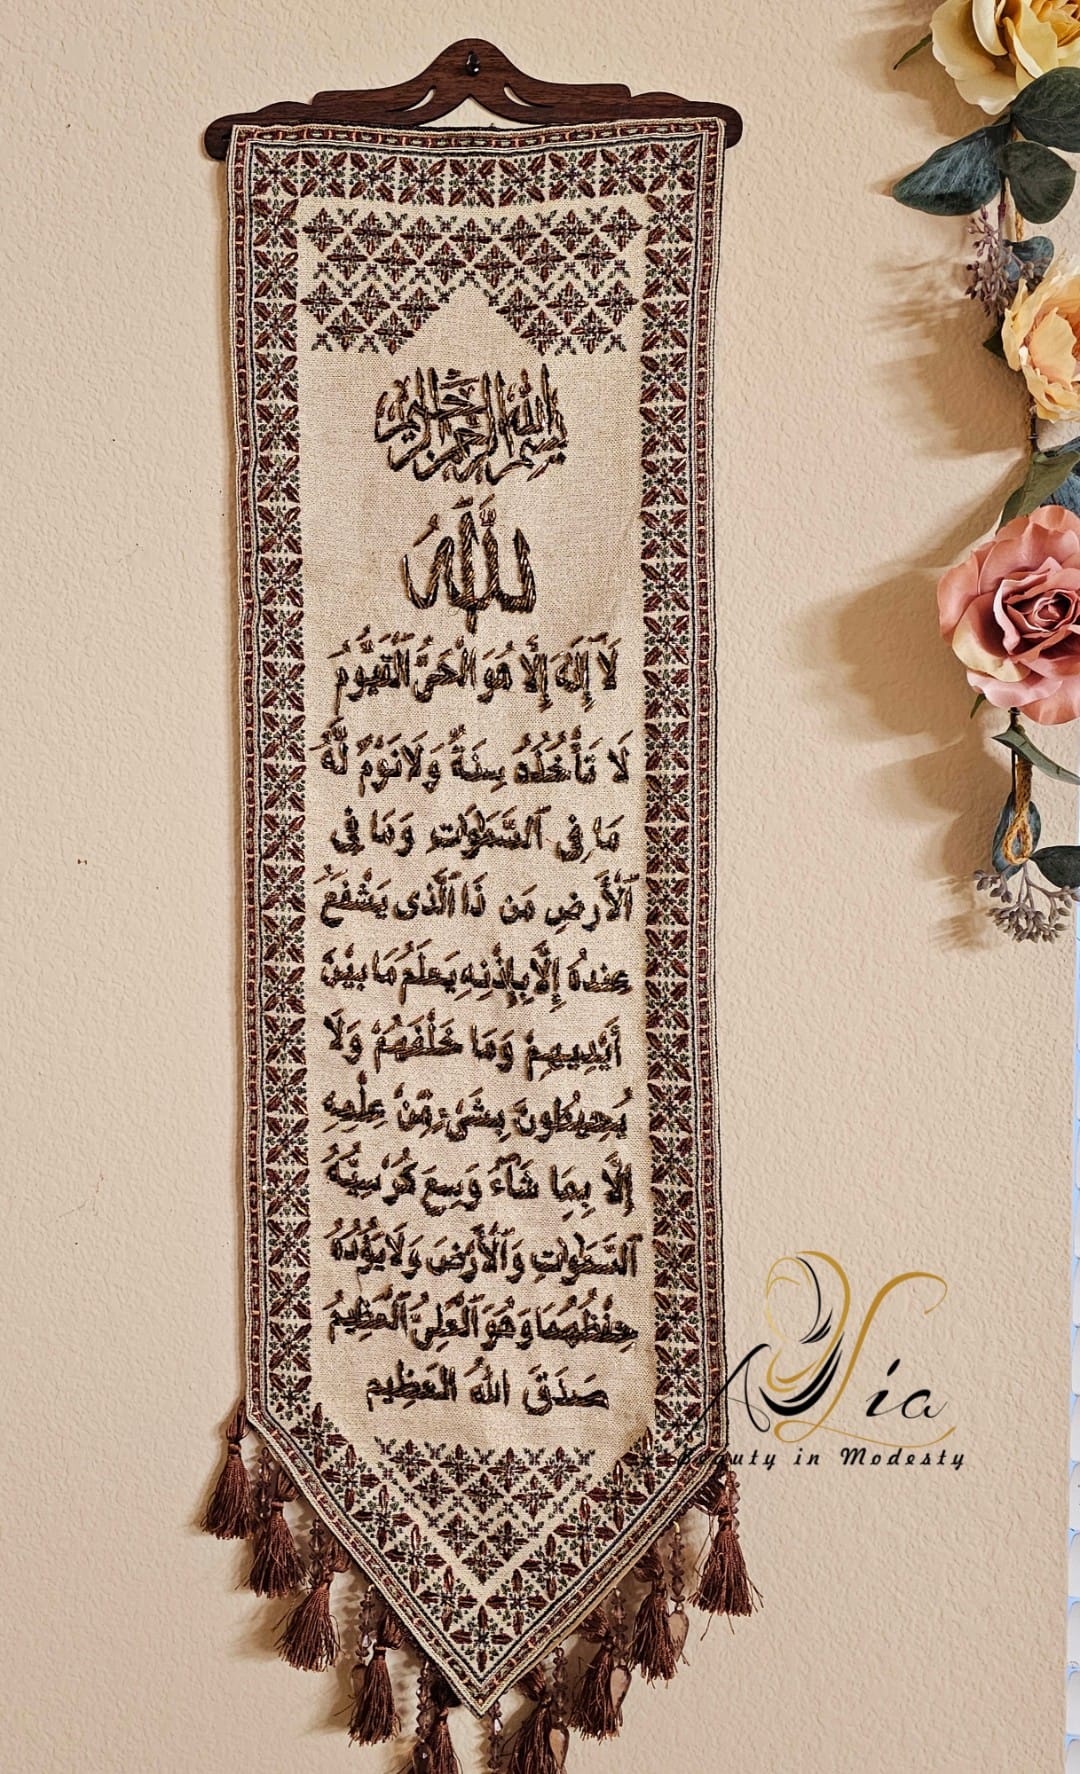 بسم الله الرحمن الرحيم
ٱللَّهُ
لَآ إِلَٰهَ إِلَّا هُوَ ٱلْحَىُّ ٱلْقَيُّومُ
لَا تَأْخُذُهُ سِنَةٌ وَلَا نَوْمٌ لَّهُ
مَا فِى ٱلسَّمَٰوَٰتِ وَمَا فِى
ٱلْأَرْضِ مَن ذَا ٱلَّذِى يَشْفَعُ
عِندَهُ إِلَّا بِإِذْنِهِ يَعْلَمُ مَا بَيْنَ
أَيْدِيهِمْ وَمَا خَلْفَهُمْ وَلَا
يُحِيطُونَ بِشَىْءٍ مِّنْ عِلْمِهِ
إِلَّا بِمَا شَآءَ وَسِعَ كُرْسِيُّهُ
ٱلسَّمَٰوَٰتِ وَٱلْأَرْضَ وَلَا يَؤُدُهُ
حِفْظُهُمَا وَهُوَ ٱلْعَلِىُّ ٱلْعَظِيمُ
صَدَقَ اللهُ العَظِيم
Alia
Beauty in Modesty